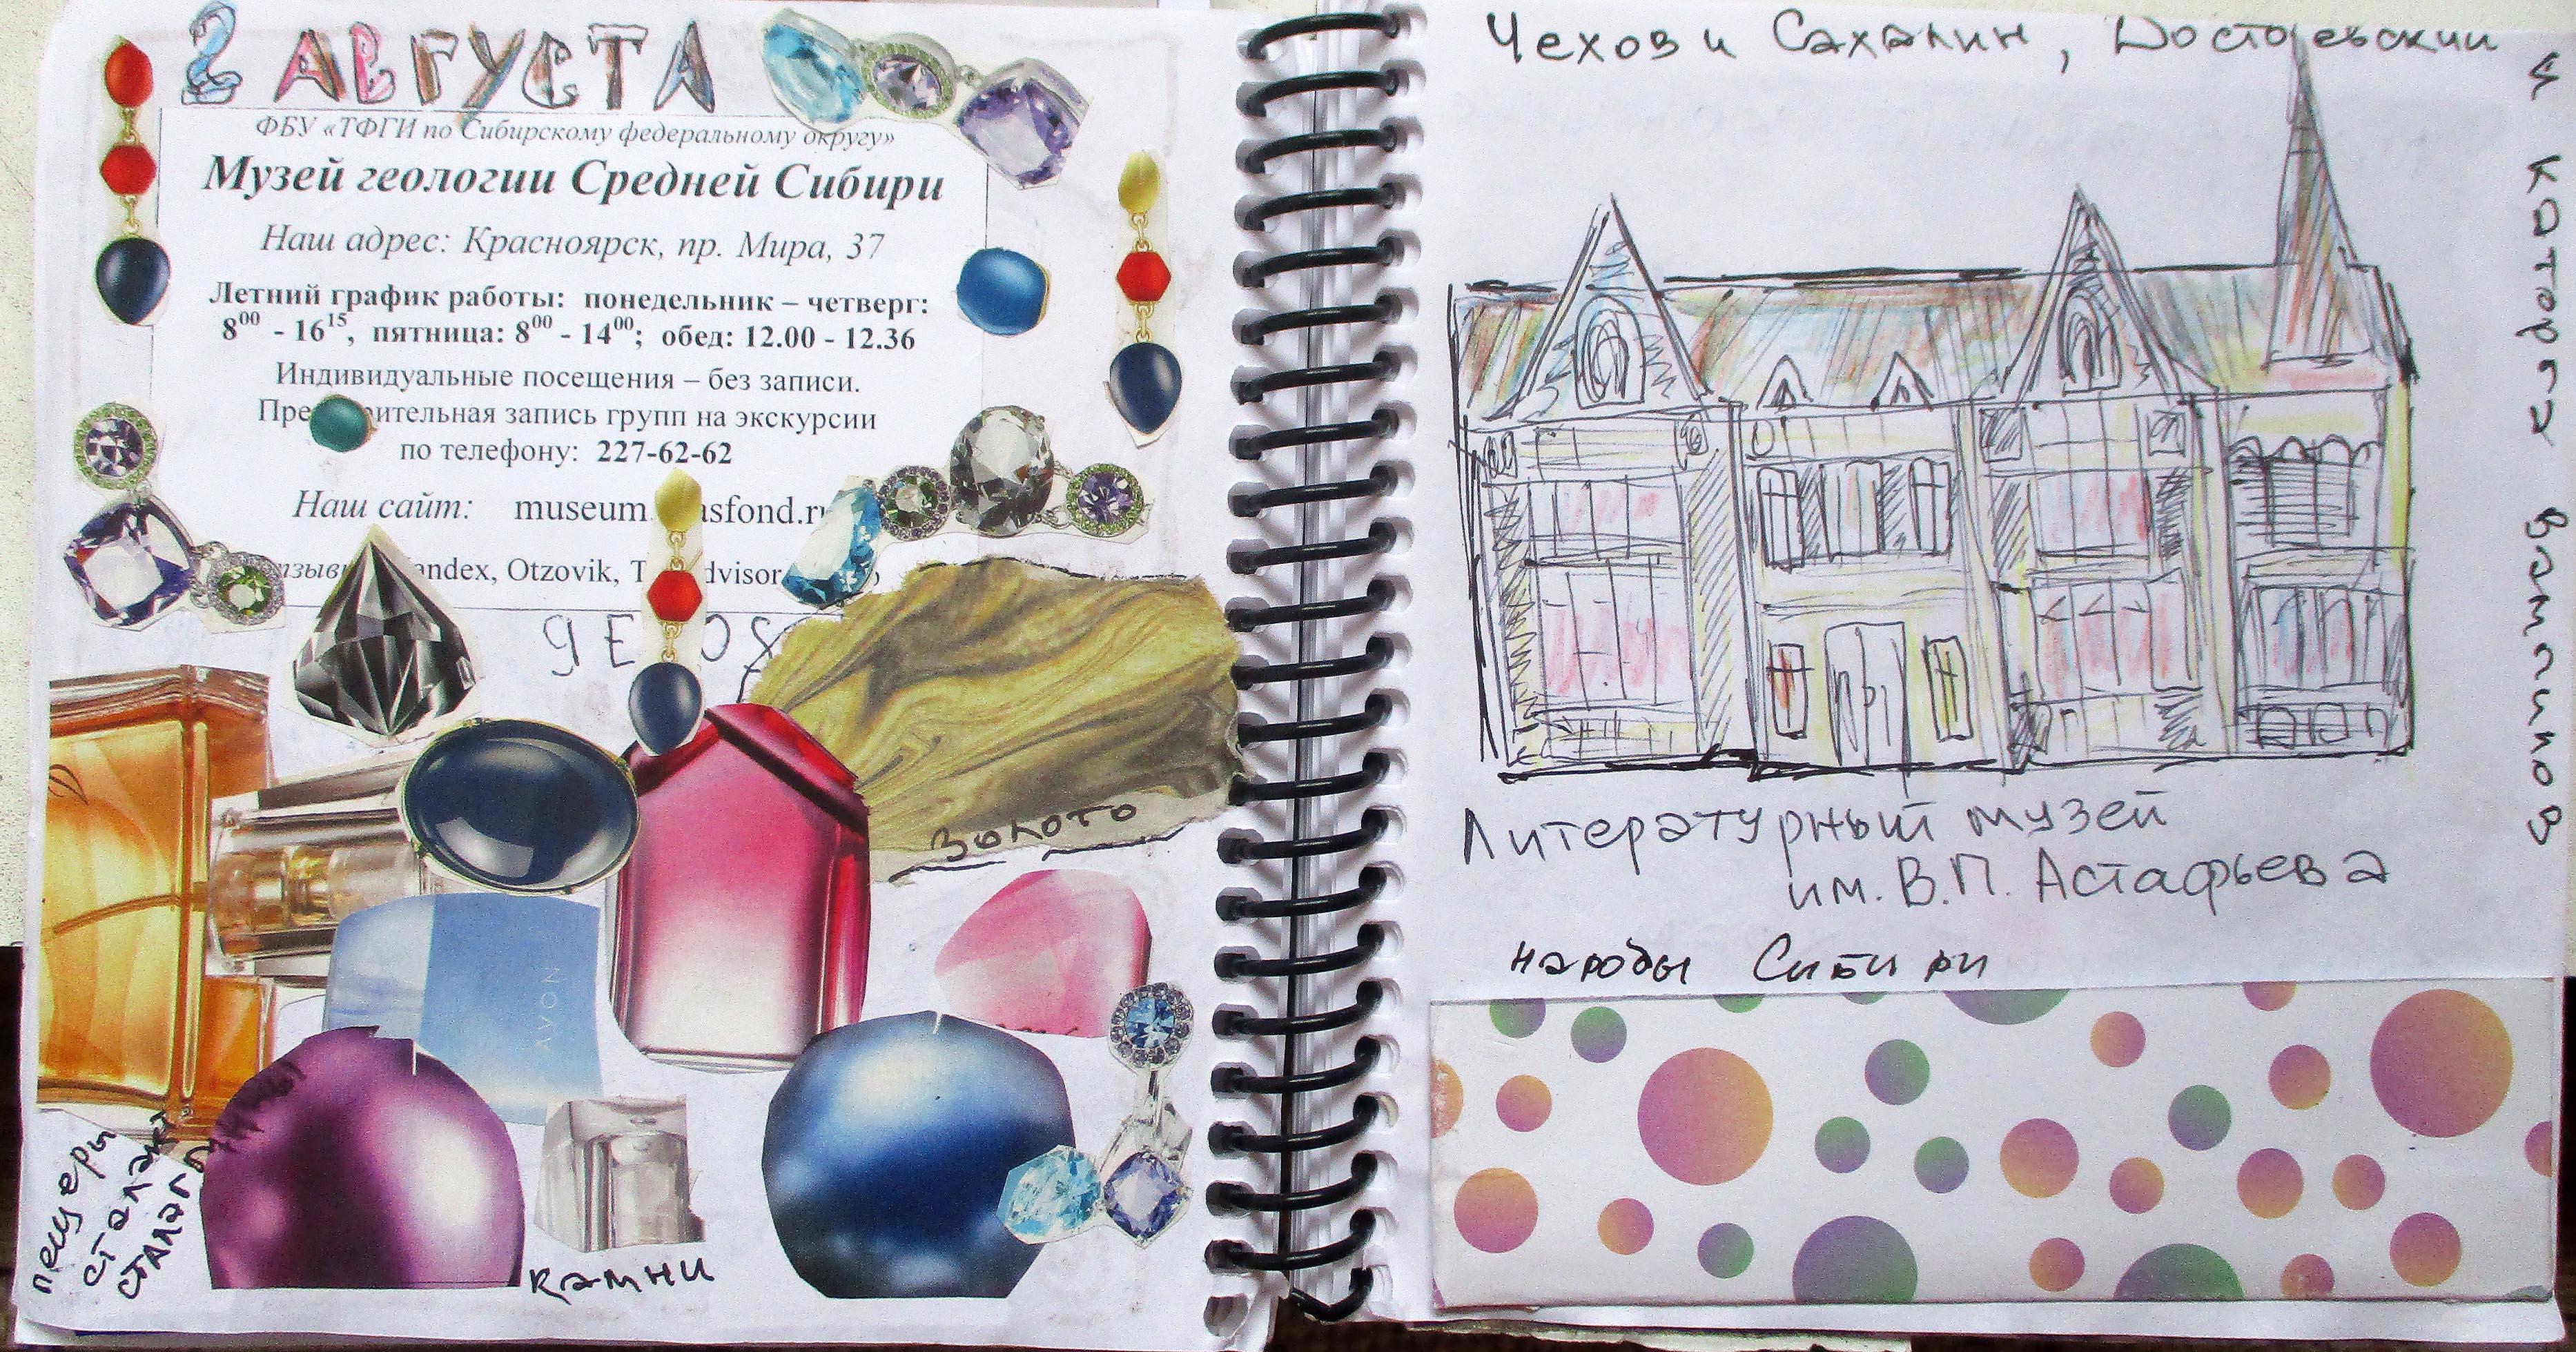 2 АВГУСТА
ФБУ «ТФГИ по Сибирскому федеральному округу»
Музей геологии Средней Сибири
Наш адрес: Красноярск, пр. Мира, 37
Летний график работы: понедельник – четверг:
8⁰⁰ - 16¹⁵, пятница: 8⁰⁰ - 14⁰⁰; обед: 12.00 - 12.36
Индивидуальные посещения – без записи.
запись групп на экскурсии
по телефону: 227-62-62
Наш сайт: museum
Otzovik,
золото
AVON
пещеры
камни
Чехов и Сахалин, Достоевский
и каторга
Литературный музей
им. В.П. Астафьева
народы Сибири